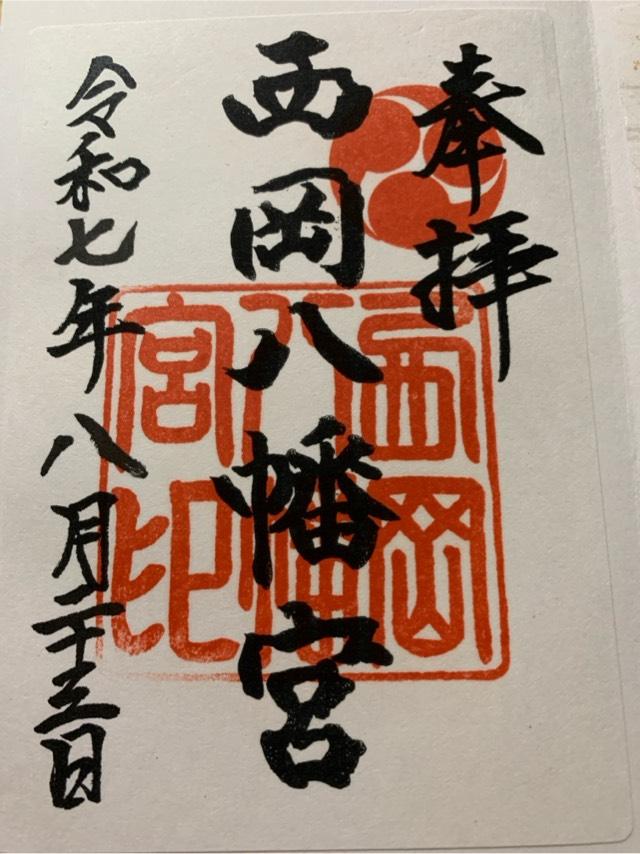 奉拝
西岡八幡宮
令和七年八月二十三日
西岡八幡宮印